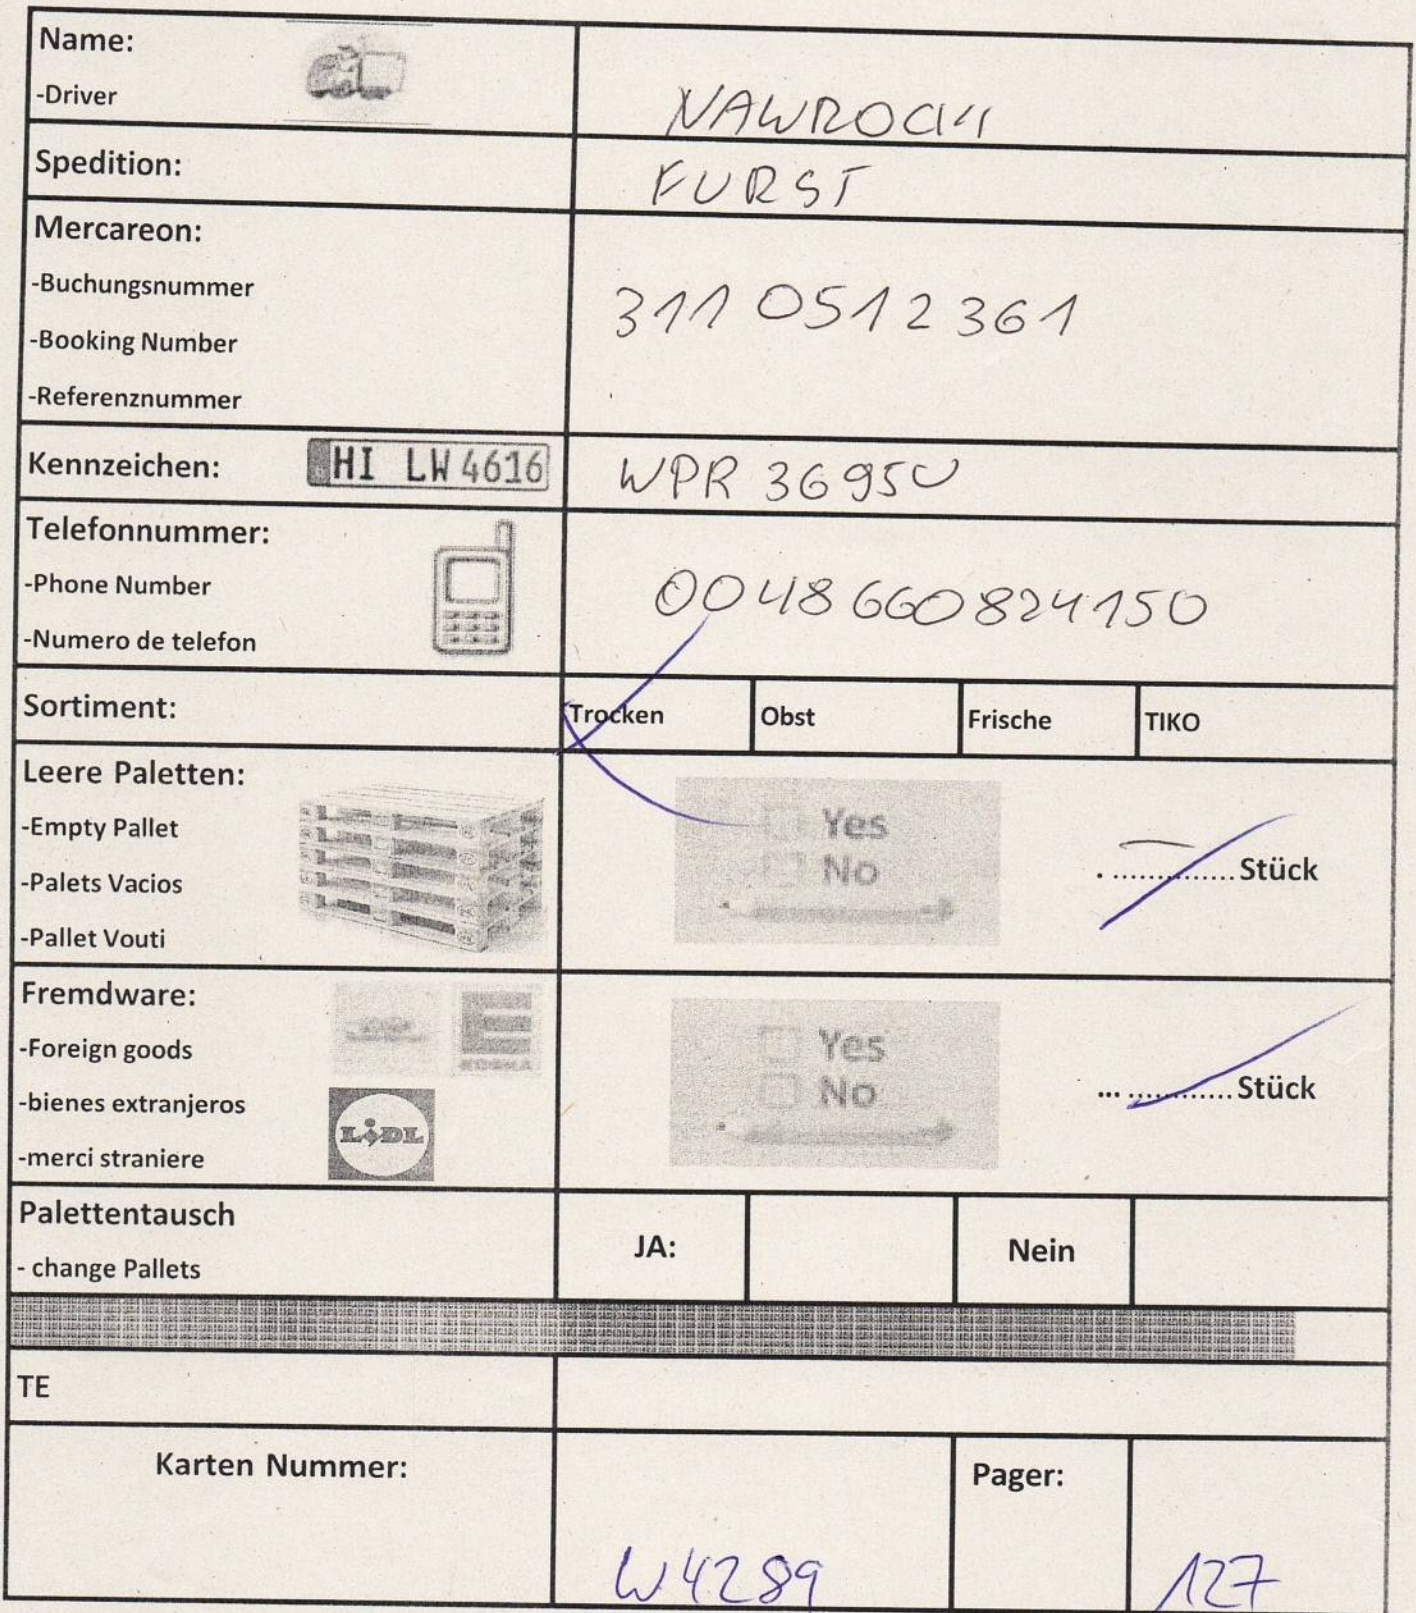 Name:
-Driver
NAWROCKI
Spedition:
FURST
Mercareon:
-Buchungsnummer
-Booking Number
-Referenznummer
311 0512361
Kennzeichen:
HI LW 4616
WPR 36950
Telefonnummer:
-Phone Number
-Numero de telefon
0048 660824150
Sortiment:
Trocken Obst Frische TIKO
Leere Paletten:
-Empty Pallet
-Palets Vacios
-Pallet Vouti
Yes
No
. .............. Stück
Fremdware:
-Foreign goods
-bienes extranjeros
-merci straniere
EDEKA
LIDL
Yes
No
... ............ Stück
Palettentausch
- change Pallets
JA: Nein
TE
Karten Nummer:
W4289
Pager:
127